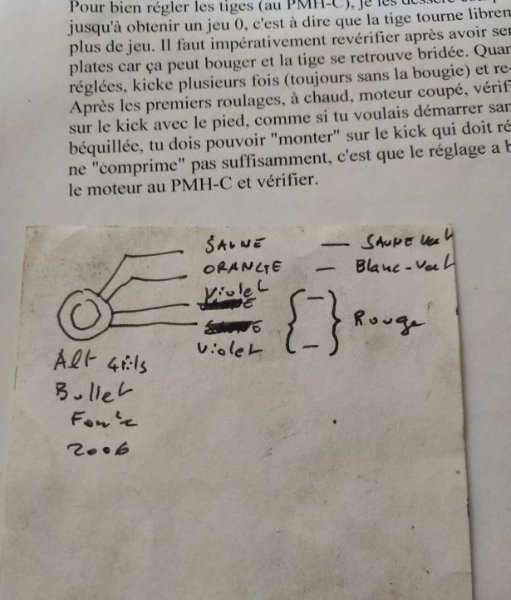 Pour bien régler les tiges (au PMH-C), je les desserre
jusqu'à obtenir un jeu 0, c'est à dire que la tige tourne
plus de jeu. Il faut impérativement revérifier après avoir
plates car ça peut bouger et la tige se retrouve bridée.
réglées, kicke plusieurs fois (toujours sans la bougie) et
Après les premiers roulages, à chaud, moteur coupé,
sur le kick avec le pied, comme si tu voulais démarrer
béquillée, tu dois pouvoir "monter" sur le kick qui doit
ne "comprime" pas suffisamment, c'est que le réglage a
le moteur au PMH-C et vérifier.
JAUNE — JAUNE Vert
ORANGE — Blanc-Vert
Violet
Violet { — — } Rouge
Alt 4 fils
Bullet
2006